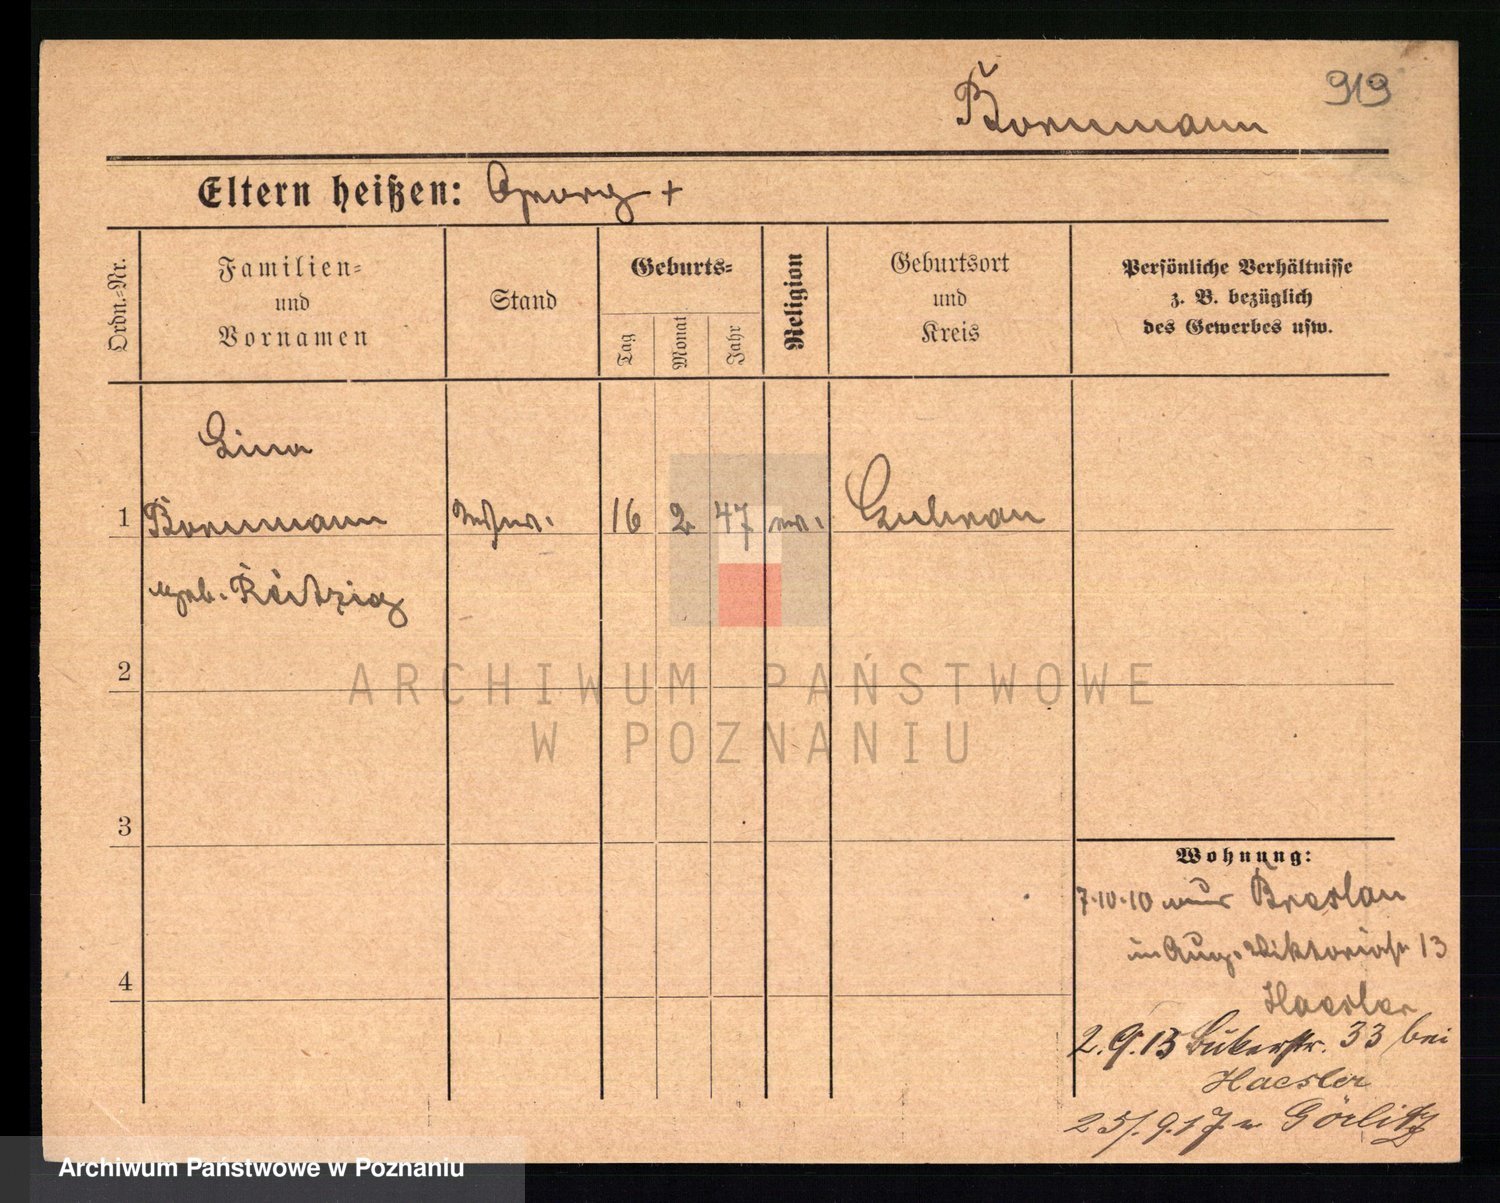 919
Bornmann
Eltern heißen: Georg +
Ordn.-Nr.
Familien-
und
Vornamen
Stand
Geburts-
Tag
Monat
Jahr
Religion
Geburtsort
und
Kreis
Persönliche Verhältnisse
z. B. bezüglich
des Gewerbes usw.
Lina
1 Bornmann 16 2 47 ev. Guhrau
geb.
2
3
4
Wohnung:
7.10.10 aus Breslau
in Aug. Viktoriastr 13
Haesler
2.9.13 Bukerstr. 33 bei
Haesler
25/.9.17 n Görlitz
ARCHIWUM PAŃSTWOWE
W POZNANIU
Archiwum Państwowe w Poznaniu